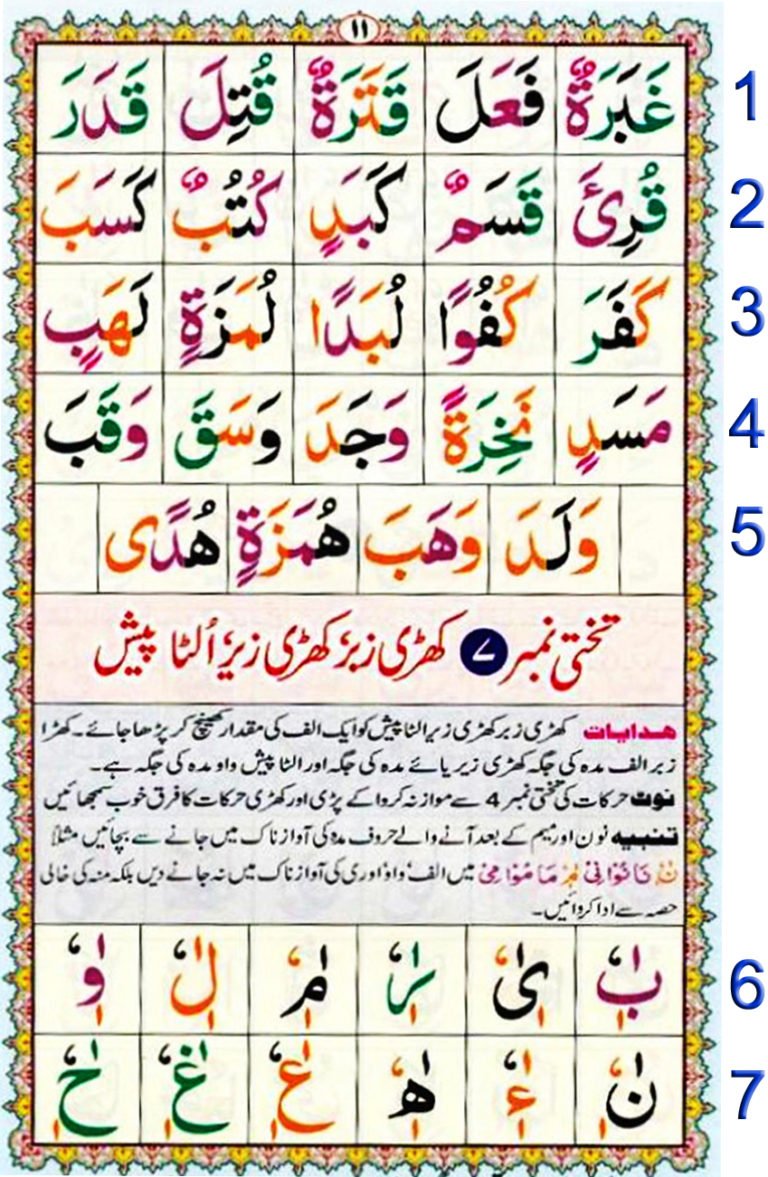 ١١
غَبَرَةٌ فَعَلَ قَتَرَةٌ قُتِلَ قَدَرَ 1
قُرِئَ قَسَمٌ كَبَدٍ كُتُبٌ كَسَبَ 2
كَفَرَ كُفُوًا لُبَدًا لُمَزَةٍ لَهَبٍ 3
مَسَدٍ نَخِرَةً وَجَدَ وَسَقَ وَقَبَ 4
وَلَدَ وَهَبَ هُمَزَةٍ هُدًى 5
تختی نمبر ۷ کھڑی زبر کھڑی زیر اُلٹا پیش
ھدایات کھڑی زبر کھڑی زیر الٹا پیش کو ایک الف کی مقدار کھینچ کر پڑھا جائے۔ کھڑا
زبر الف مدہ کی جگہ کھڑی زیر یائے مدہ کی جگہ اور الٹا پیش واو مدہ کی جگہ ہے۔
نوٹ حرکات کی تختی نمبر 4 سے موازنہ کروا کے پڑی اور کھڑی حرکات کا فرق خوب سمجھائیں
تنبیہ نون اور میم کے بعد آنے والے حروف مدہ کی آواز ناک میں جانے سے بچائیں مثلاً
نَا نُوْا نِیْ مَا مُوْا مِیْ میں الف، واؤ اور ی کی آواز ناک میں نہ جانے دیں بلکہ منہ کی خالی
حصہ سے ادا کروائیں۔
بٰٖٗ یٰٖٗ رٰٖٗ مٰٖٗ لٰٖٗ وٰٖٗ 6
نٰٖٗ ءٰٖٗ هٰٖٗ عٰٖٗ غٰٖٗ حٰٖٗ 7